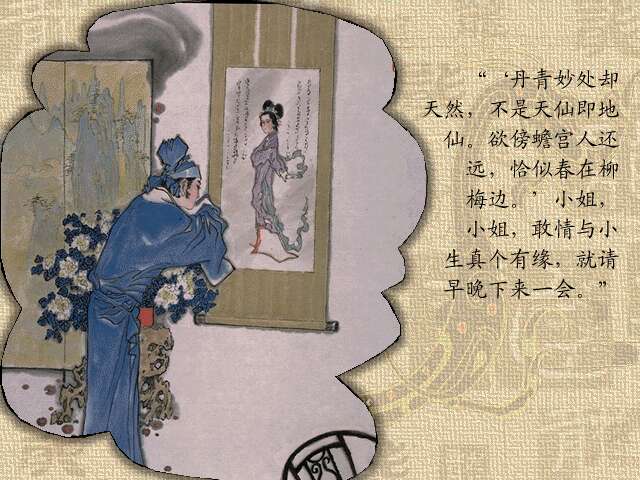 “‘丹青妙处却
天然，不是天仙即地
仙。欲傍蟾宫人还
远，恰似春在柳
梅边。’小姐，
小姐，敢情与小
生真个有缘，就请
早晚下来一会。”